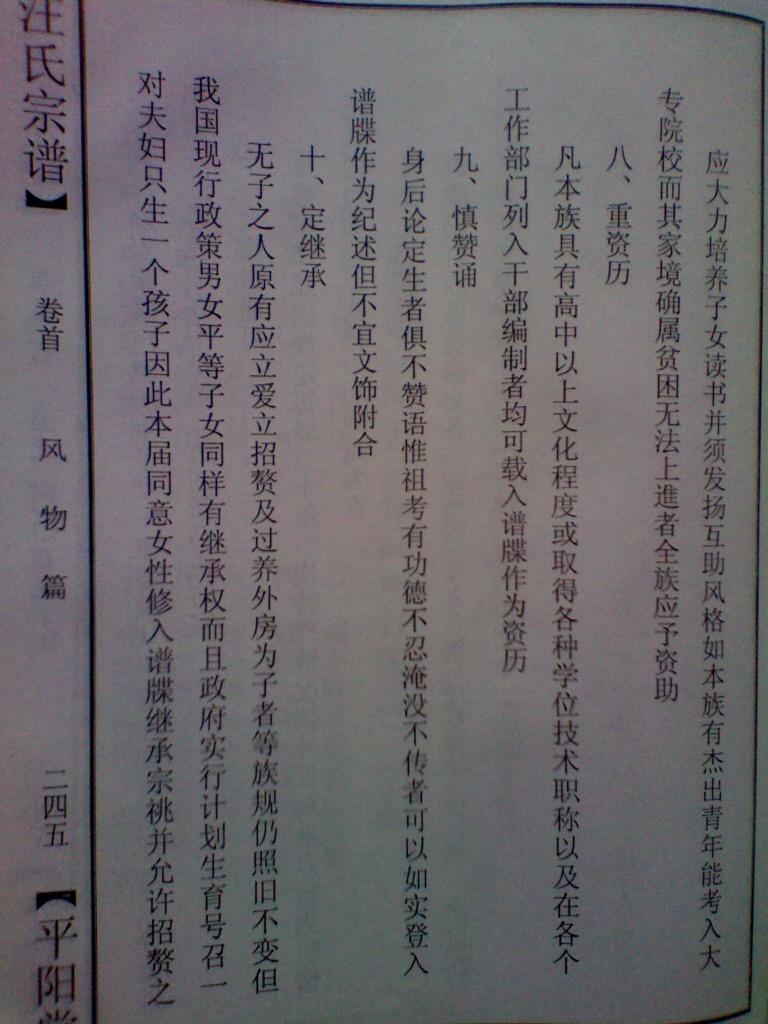 应大力培养子女读书并须发扬互助风格如本族有杰出青年能考入大
专院校而其家境确属贫困无法上進者全族应予资助
八、重资历
凡本族具有高中以上文化程度或取得各种学位技术职称以及在各个
工作部门列入干部编制者均可载入谱牒作为资历
九、慎赞诵
身后论定生者俱不赞语惟祖考有功德不忍淹没不传者可以如实登入
谱牒作为纪述但不宜文饰附合
十、定继承
无子之人原有应立爱立招赘及过养外房为子者等族规仍照旧不变但
我国现行政策男女平等子女同样有继承权而且政府实行计划生育号召一
对夫妇只生一个孩子因此本届同意女性修入谱牒继承宗祧并允许招赘之
汪氏宗谱】 卷首 风物篇 二四五 【平阳堂